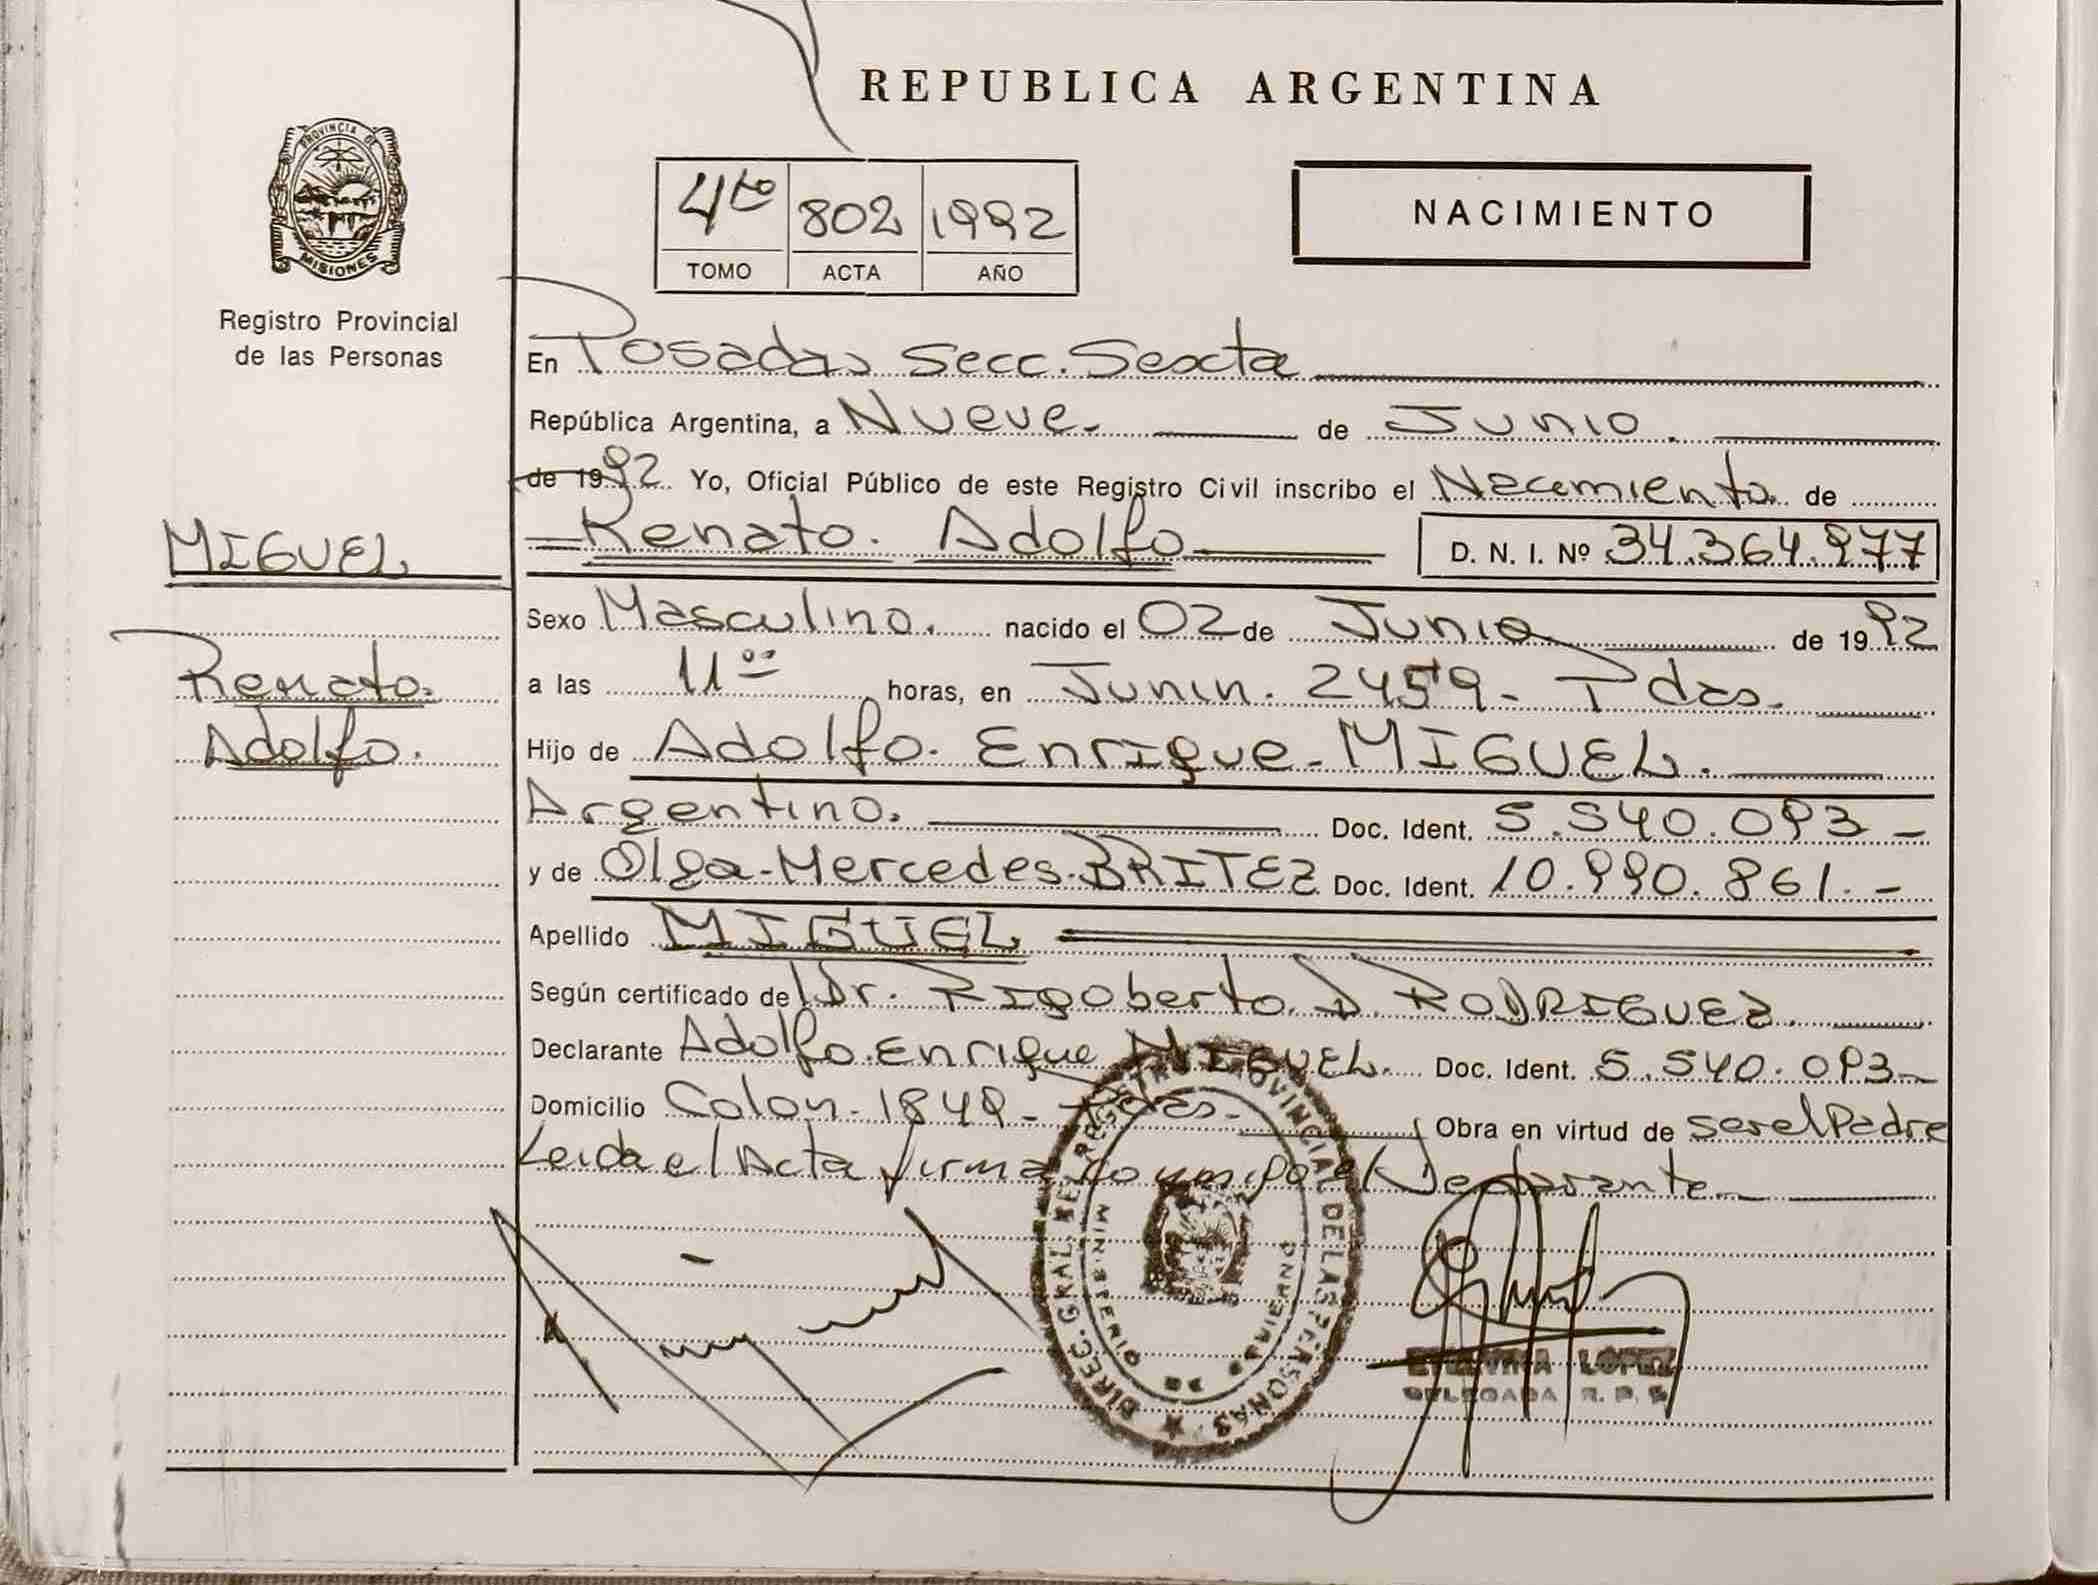 REPUBLICA ARGENTINA
PROVINCIA DE
MISIONES
Registro Provincial
de las Personas
4to 802 1992
TOMO ACTA AÑO
NACIMIENTO
En Posadas Secc. Sexta
República Argentina, a Nueve de Junio
de 1992 Yo, Oficial Público de este Registro Civil inscribo el Nacimiento de
Renato Adolfo D. N. I. Nº 34.364.977
MIGUEL
Renato
Adolfo
Sexo Masculino. nacido el 02 de Junio de 1992
a las 11⁰⁰ horas, en Junin. 2459 - Pdas.
Hijo de Adolfo Enrique MIGUEL.
Argentino. Doc. Ident. 5.540.093 -
y de Olga Mercedes BRITEZ Doc. Ident. 10.990.861. -
Apellido MIGUEL
Según certificado de Dr. Rigoberto D. RODRIGUEZ.
Declarante Adolfo Enrique MIGUEL. Doc. Ident. 5.540.093 -
Domicilio Colon - 1849 - Pdas. Obra en virtud de ser el Padre
Leida el Acta firma conmigo el Declarante
DIREC. GRAL. DEL REGISTRO PROVINCIAL DE LAS PERSONAS
MINISTERIO DE GOBIERNO
LOPEZ
DELEGADA R. P. P.